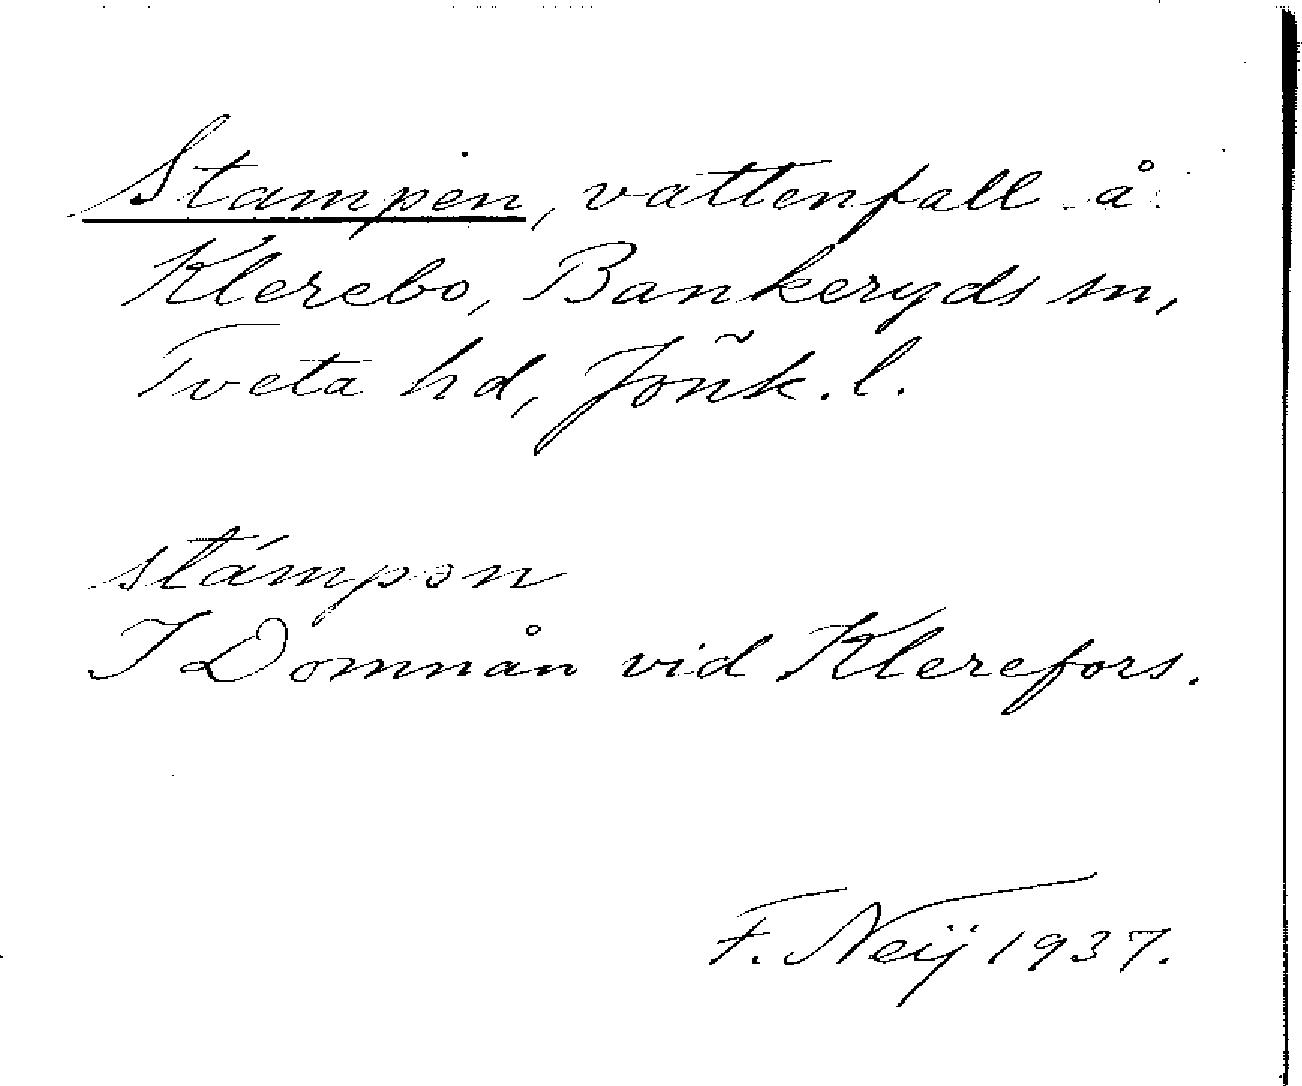 Stampen, vattenfall å
Klerebo, Bankeryds sn,
Tveta hd, Jönk. l.
stámpən
I Domnån vid Klerefors.
F. Neij 1937.